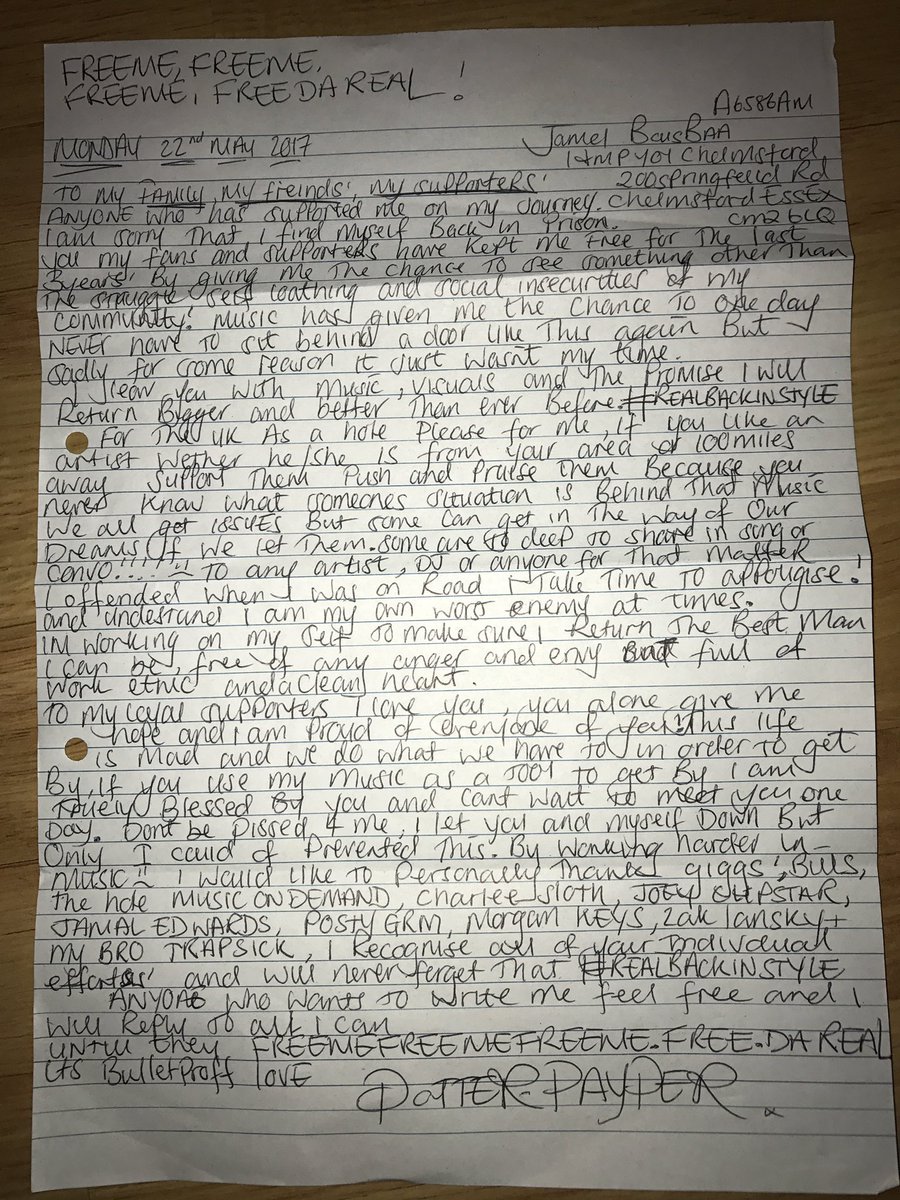 FREEME, FREEME,
FREEME, FREE DA REAL!
A6586AM
MONDAY 22nd MAY 2017
Jamel BousBAA
HMPYOI Chelmsford
200 Springfeild Rd
Chelmsford EssEx
CM2 6LQ
TO MY FAMILY, My freinds', My supporters'
ANYONE who has supported me on my Journey.
I am sorry That I find myself Back in Prison.
you my fans and supporters have kept me free for The last
3years' By giving me The chance To see something other Than
The struggle self loathing and social insecurities of my
community. Music has given me the chance To one day
NEVER have to sit behind a door like This again But
sadly for some reason it just wasnt my time.
I leav you with Music, visuals and The Promise I will
Return Bigger and better Than ever Before. #REALBACKINSTYLE
For The UK As a hole Please for me, if you like an
artist wether he/she is from your area or 100 miles
away support Them Push and Praise them Because you
never know what someones situation is Behind That Music
We all get issues But some can get in The way of Our
Dreams if we let Them. some are to deep to share in song or
convo!!!!! To any artist, DJ or anyone for That matter
I offended when I was on Road I Take Time To appougise!
and undestand I am my own worst enemy at times.
IM working on my self to make sure I Return The Best Man
I can be, free of any anger and envy full of
work ethic and a clean heart.
To my loyal supporters I love you, you alone give me
hope and I am Proud of everyone of you! This life
is Mad and we do what we have to in order to get
By, if you use my music as a TOOl to get By I am
truely Blessed By you and cant wait to meet you one
Day. Dont be pissed 4 me, I let you and myself Down But
Only I could of Prevented This. By working harder in
Music I would like To Personally Thank giggs', Buls,
the hole MUSIC ON DEMAND, Charlee sloth, JOEY CLIPSTAR,
JAMAL EDWARDS, POSTY GRM, Morgan KEYS, Zak lansky +
my BRO TRAPSICK, I Recognise all of your Individual
efforts' and will never forget That #REALBACKINSTYLE
ANYONE who wants To write me feel free and I
will Reply To all I can
untill they FREEMEFREEMEFREEME.FREE.DA REAL
Its BulletProff love
POTTER-PAYPER x